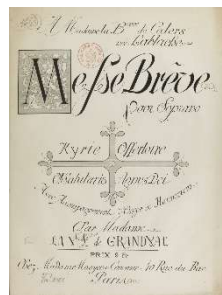 A Madame la Bonne de Caters
née Lablache
Messe Brève
pour Soprano
Kyrie Offertoire
O Salutaris Agnus Dei
Avec Accompagnement d'Orgue ou Harmonium
Par Madame
la Vtesse de GRANDVAL
PRIX 8 Fr
Chez Madame Maeyens Couvreur 40 Rue du Bac
Paris